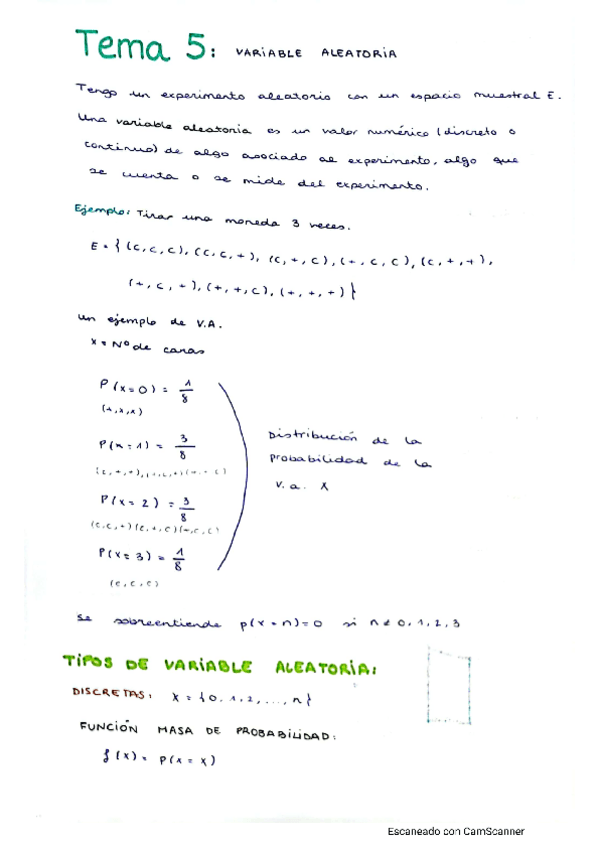 Tema 5: VARIABLE ALEATORIA
Tengo un experimento aleatorio con un espacio muestral E.
Una variable aleatoria es un valor numérico (discreto o
continuo) de algo asociado al experimento, algo que
se cuenta o se mide del experimento.
Ejemplo: Tirar una moneda 3 veces.
E = { (c, c, c), (c, c, +), (c, +, c), (+, c, c), (c, +, +),
(+, c, +), (+, +, c), (+, +, +) }
Un ejemplo de V.A.
x = Nº de caras
P(x=0) = 1/8
P(x=1) = 3/8
Distribución de la
probabilidad de la
v.a. X
P(x=2) = 3/8
(c,c,+)(c,+,c)(+,c,c)
P(x=3) = 1/8
(c, c, c)
Se sobreentiende p(x=n)=0 si n≠0,1,2,3
TIPOS DE VARIABLE ALEATORIA:
DISCRETAS: x = {0, 1, 2, ..., n}
FUNCIÓN MASA DE PROBABILIDAD:
f(x) = P(X = x)
Escaneado con CamScanner